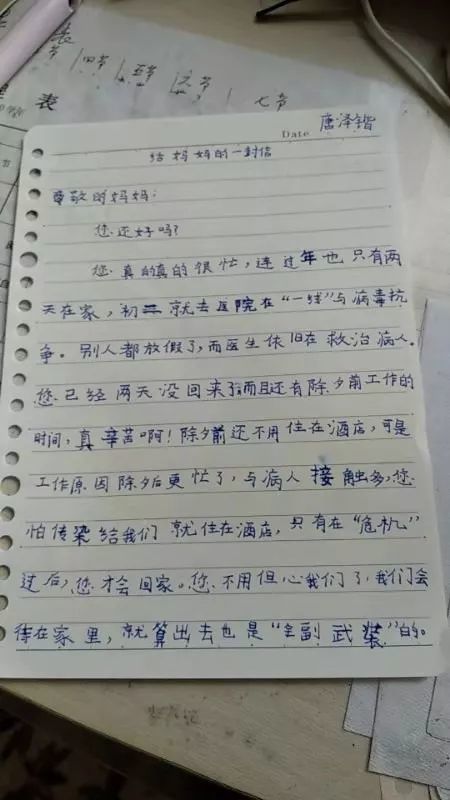 表
节 四节 五节 六节 七节
表
Date 唐泽锴
给妈妈的一封信
尊敬的妈妈:
您还好吗?
您真的真的很忙,连过年也只有两
天在家,初二就去医院在“一线”与病毒抗
争。别人都放假了,而医生依旧在救治病人。
您已经两天没回来了而且还有除夕前工作的
时间,真辛苦啊!除夕前还不用住在酒店,可是
工作原因除夕后更忙了,与病人接触多,您
怕传染给我们就住在酒店,只有在“危机”
过后,您才会回家。您不用但心我们了,我们会
待在家里,就算出去也是“全副武装”的。